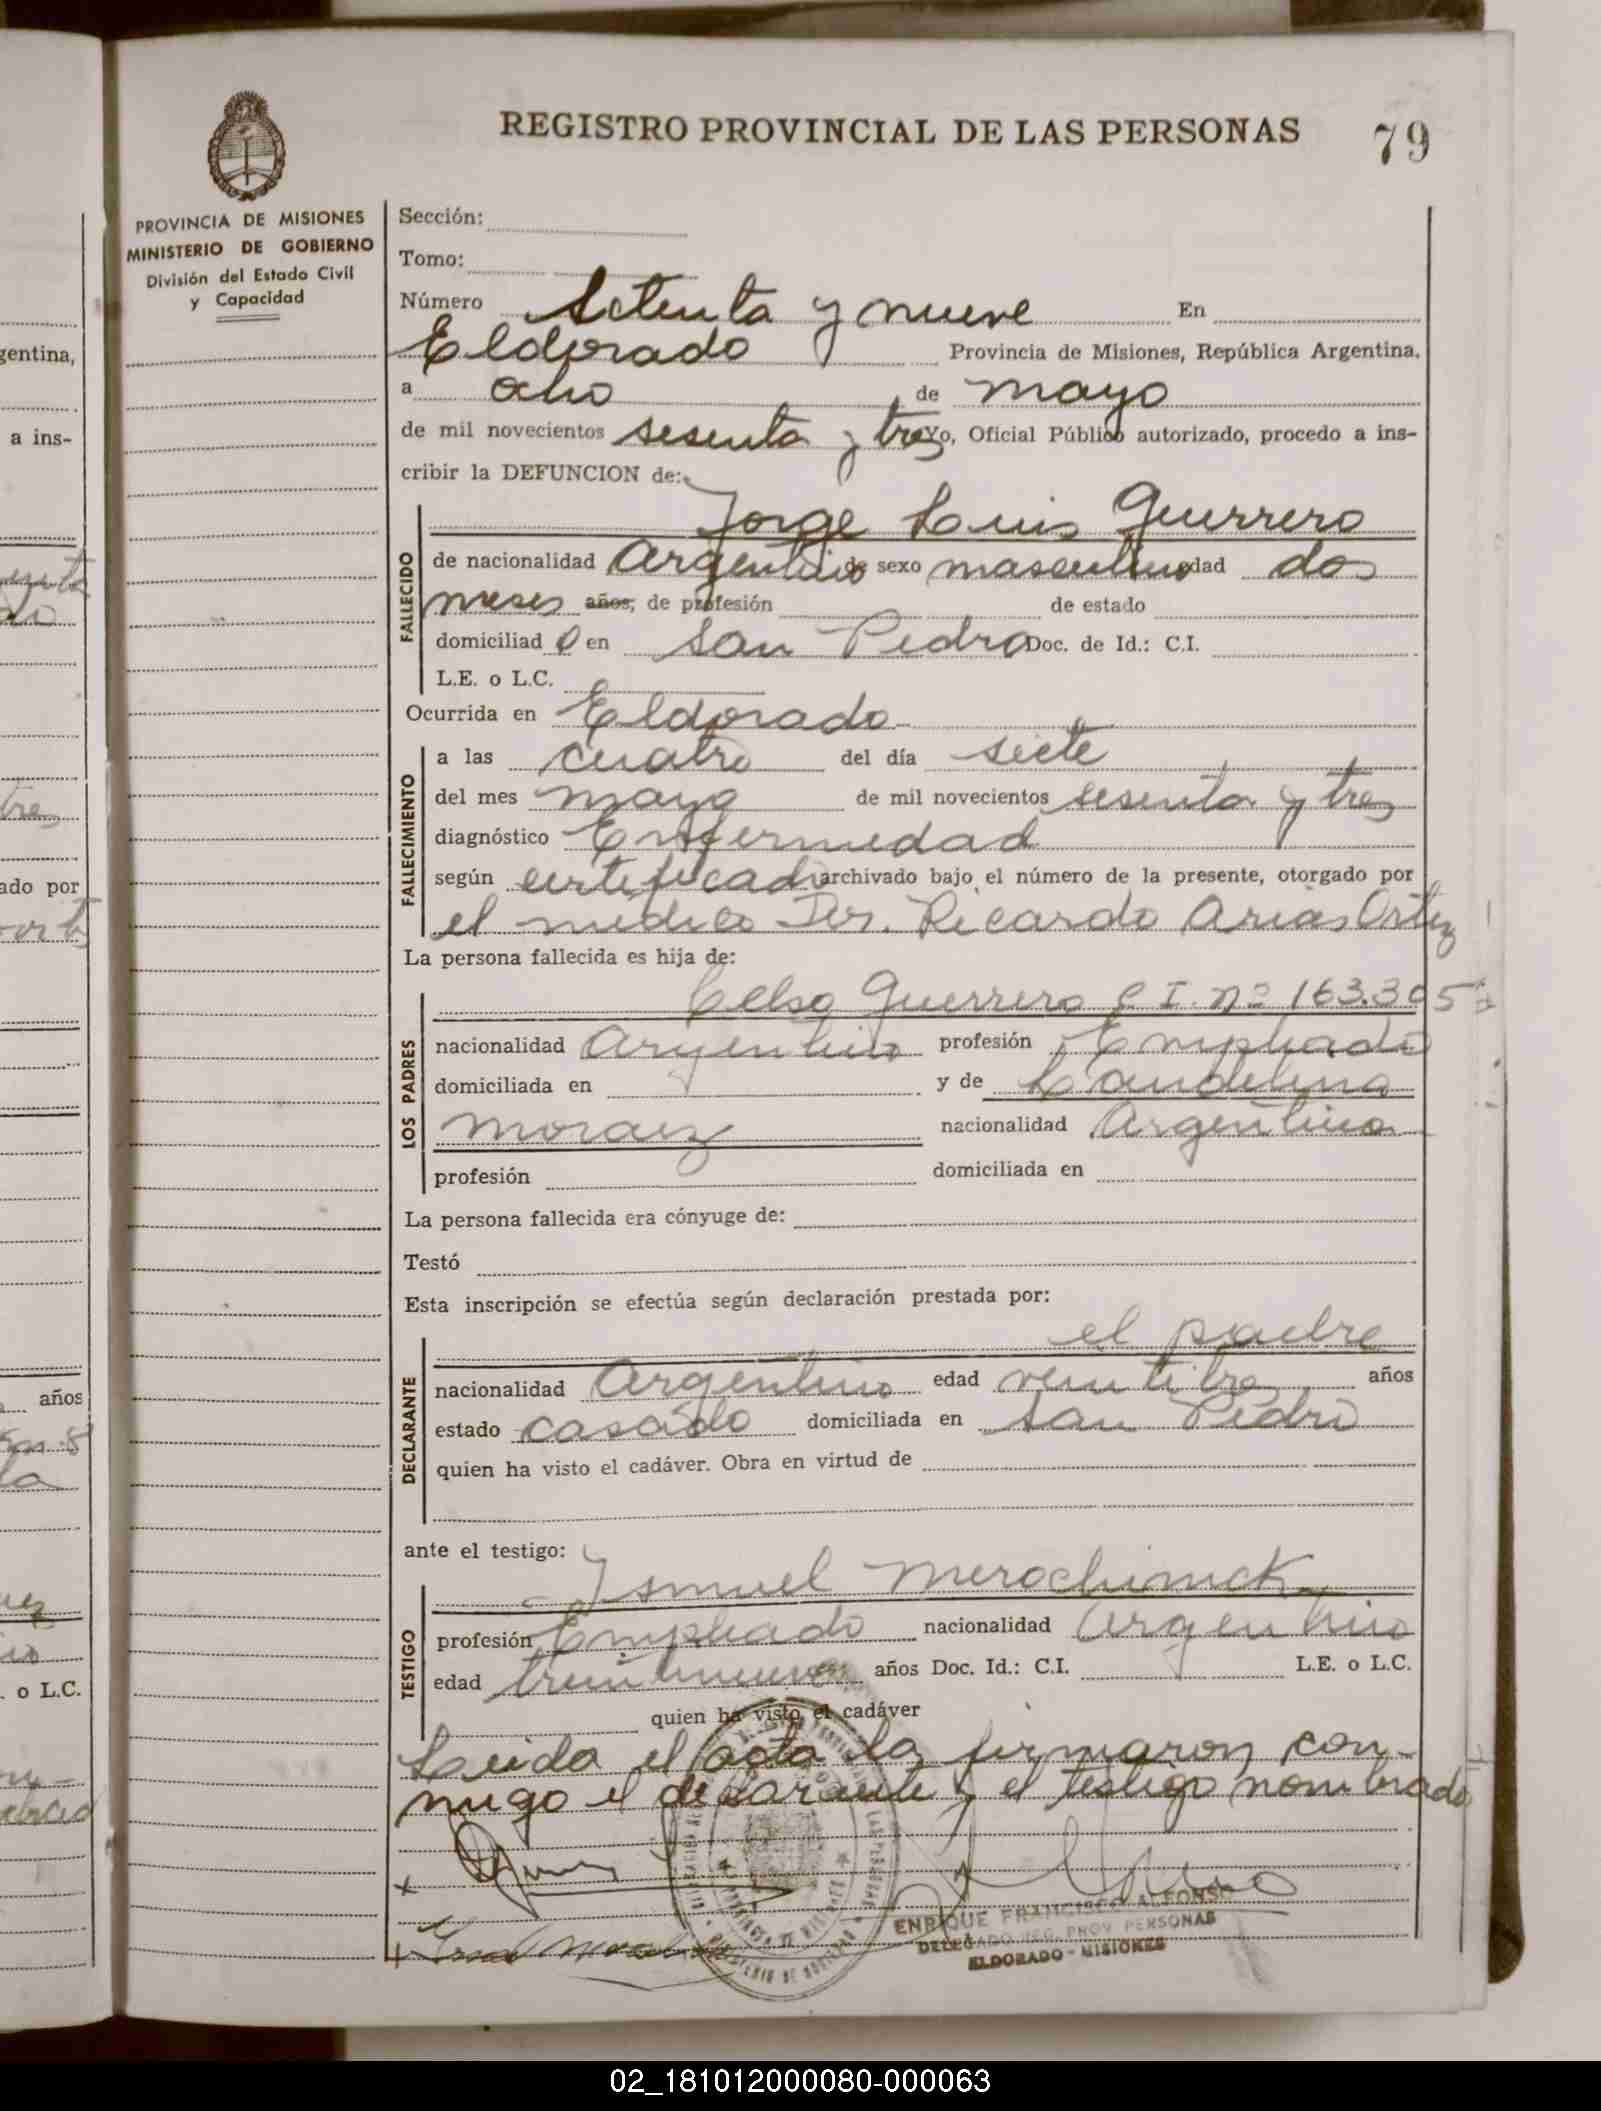 REGISTRO PROVINCIAL DE LAS PERSONAS 79
PROVINCIA DE MISIONES
MINISTERIO DE GOBIERNO
División del Estado Civil
y Capacidad
Sección:
Tomo:
Número Setenta y nueve En
Eldorado Provincia de Misiones, República Argentina,
a ocho de mayo
de mil novecientos sesenta y tres Yo, Oficial Público autorizado, procedo a ins-
cribir la DEFUNCION de:
Jorge Luis Guerrero
FALLECIDO
de nacionalidad Argentino de sexo masculino edad dos
meses años, de profesión de estado
domiciliad o en San Pedro Doc. de Id.: C.I.
L.E. o L.C.
Ocurrida en Eldorado
FALLECIMIENTO
a las cuatro del día siete
del mes mayo de mil novecientos sesenta y tres
diagnóstico Enfermedad
según certificado archivado bajo el número de la presente, otorgado por
el médico Dr. Ricardo Arias Ortiz
La persona fallecida es hija de:
Celso Guerrero C I. nº 163.305
LOS PADRES
nacionalidad Argentino profesión Empleado
domiciliada en y de Candelina
moraez nacionalidad Argentina
profesión domiciliada en
La persona fallecida era cónyuge de:
Testó
Esta inscripción se efectúa según declaración prestada por:
el padre
DECLARANTE
nacionalidad Argentino edad veintitres años
estado casado domiciliada en San Pedro
quien ha visto el cadáver. Obra en virtud de
ante el testigo:
TESTIGO
profesión Empleado nacionalidad Argentino
edad treintinueve años Doc. Id.: C.I. L.E. o L.C.
quien ha visto el cadáver
Leida el acta la firmaron con-
migo el declarante y el testigo nombrado
ENRIQUE FRANCISCO ALFONSO
DELEGADO REG. PROV. PERSONAS
ELDORADO - MISIONES
gentina,
a ins-
ado por
años
. o L.C.
02_181012000080-000063